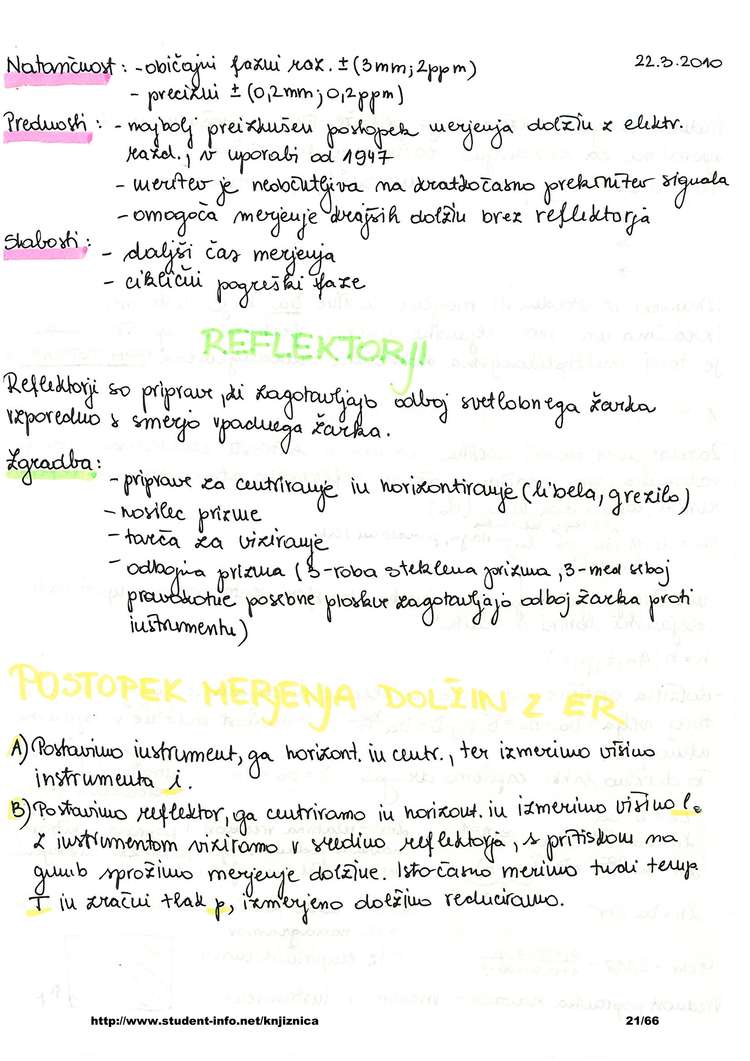 Natančnost: - običajni fazni raz. ± (3mm; 2ppm) 22.3.2010
- precizni ± (0,2mm; 0,2ppm)
Prednosti: - najbolj preizkušen postopek merjenja dolžin z elektr.
razd., v uporabi od 1947
- meritev je neobčutljiva na kratkočasno prekinitev signala
- omogoča merjenje krajših dolžin brez reflektorja
Slabosti: - daljši čas merjenja
- ciklični pogreški faze
REFLEKTORJI
Reflektorji so priprave, ki zagotavljajo odboj svetlobnega žarka
vzporedno s smerjo vpadnega žarka.
Zgradba:
- priprave za centriranje in horizontiranje (libela, grezilo)
- nosilec prizme
- tarča za viziranje
- odbojna prizma (3-roba steklena prizma, 3-med seboj
pravokotne posebne ploskve zagotavljajo odboj žarka proti
inštrumentu)
POSTOPEK MERJENJA DOLŽIN Z ER
A) Postavimo inštrument, ga horizont. in centr., ter izmerimo višino
instrumenta i.
B) Postavimo reflektor, ga centriramo in horizont. in izmerimo višino l.
Z inštrumentom viziramo v sredino reflektorja, s pritiskom na
gumb sprožimo merjenje dolžine. Istočasno merimo tudi temp
T in zračni tlak p, izmerjeno dolžino reduciramo.
http://www.student-info.net/knjiznica 21/66